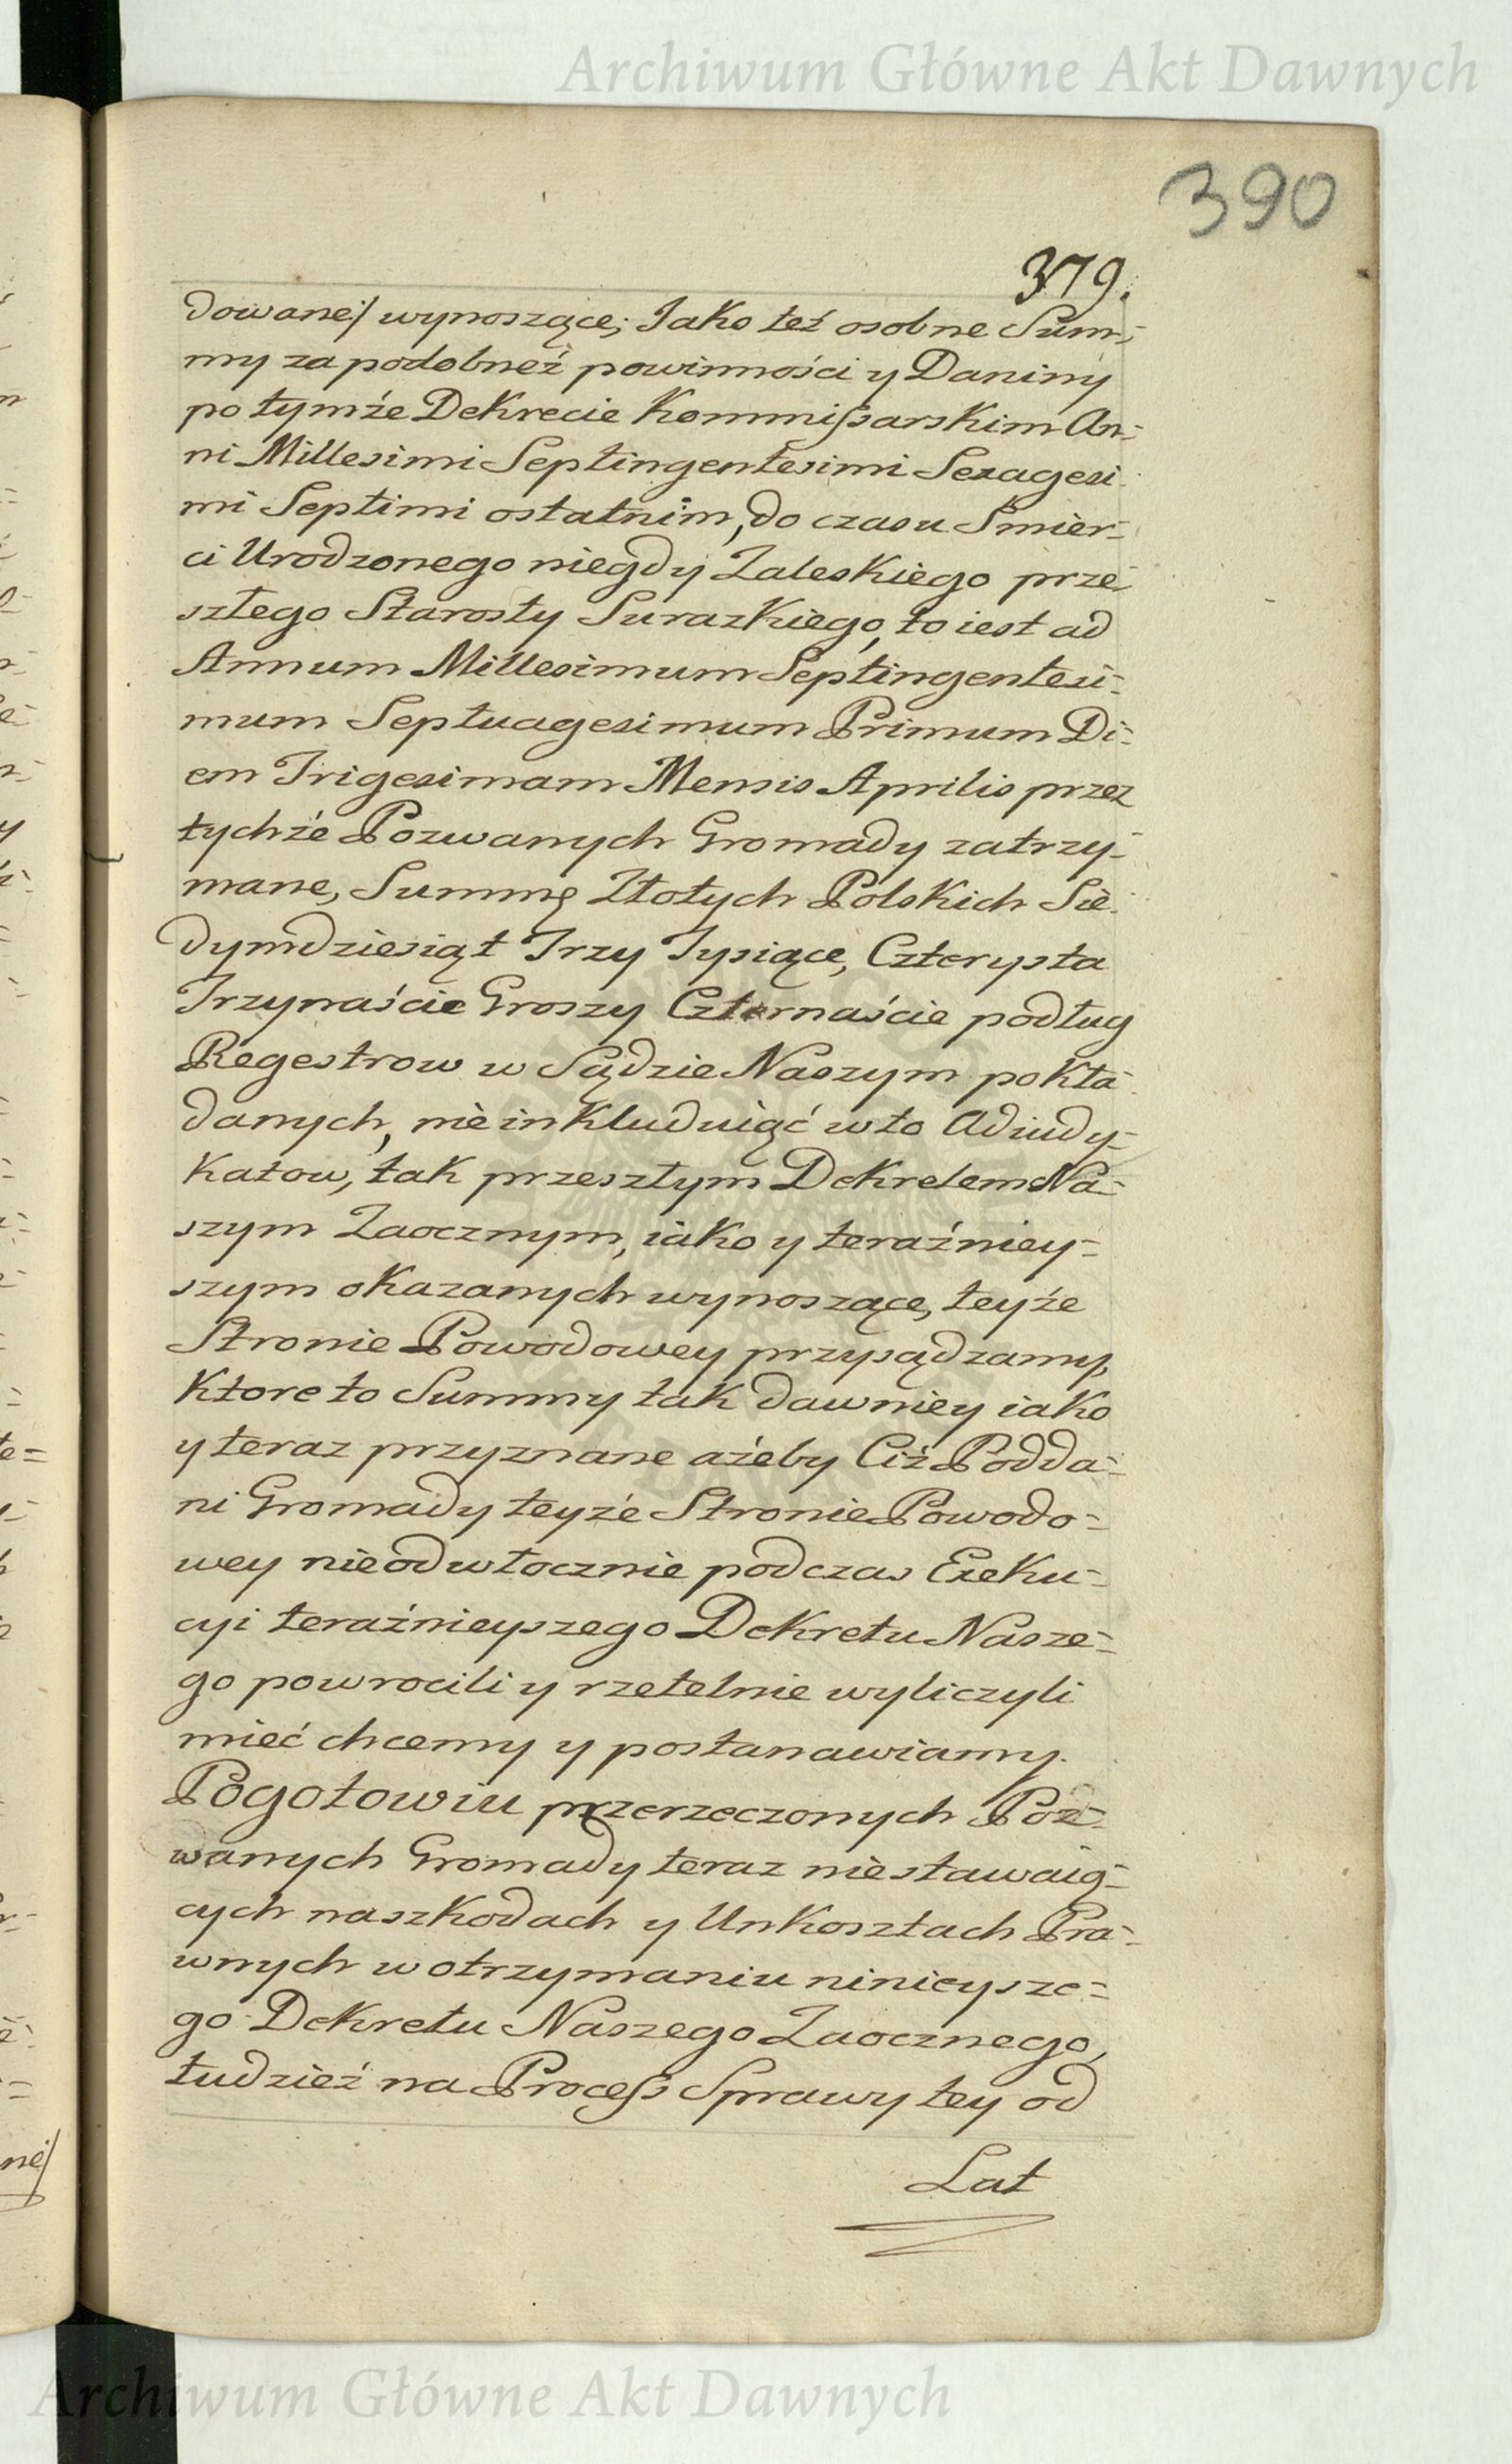 Archiwum Główne Akt Dawnych
390
379.
dowane/ wynoszące; Jako też osobne Sum-
my za podobneż powinności y Daniny
po tymże Dekrecie Kommißarskim An-
ni Millesimi Septingentesimi Sexagesi-
mi Septimi ostatnim, do czasu Smier-
ci Urodzonego niegdy Zaleskiego prze-
szłego Starosty Surazkiego, to iest ad
Annum Millesimum Septingentesi-
mum Septuagesimum Primum Di-
em Trigesimam Mensis Aprilis przez
tychże Pozwanych Gromady zatrzy-
mane, Summę Złotych Polskich Sie-
dymdziesiąt Trzy Tysiące, Czterysta
Trzynaście Groszy Czternaście podług
Regestrow w Sądzie Naszym pokła-
danych, nie inkluduiąć w to Adiudy-
katow, tak przeszłym Dekretem Na-
szym Zaocznym, iako y teraźniey-
szym okazanych wynoszące, teyże
Stronie Powodowey przysądzamy,
Ktore to Summy tak dawniey iako
y teraz przyznane ażeby Ciż Podda-
ni Gromady teyże Stronie Powodo-
wey nieodwłocznie podczas Exeku-
cyi teraźnieyszego Dekretu Nasze-
go powrocili y rzetelnie wyliczyli
mieć chcemy y postanawiamy.
Pogotowiu przerzeczonych Poz-
wanych Gromady teraz niestawaią-
cych naszkodach y Unkosztach Pra-
wnych w otrzymaniu ninieysze-
go Dekretu Naszego Zaocznego,
tudzież na Proceß Sprawy tey od
Lat
ne/
Archiwum Główne Akt Dawnych